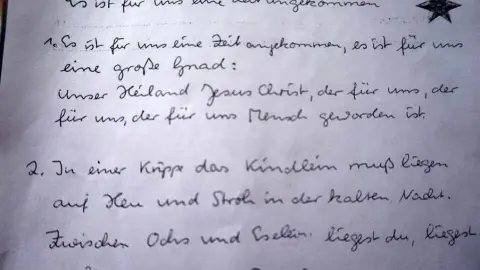 Es ist für uns eine Zeit angekommen
1. Es ist für uns eine Zeit angekommen, es ist für uns
eine große Gnad:
Unser Heiland Jesus Christ, der für uns, der
für uns, der für uns Mensch geworden ist.
2. In einer Krippe das Kindlein muß liegen
auf Heu und Stroh in der kalten Nacht.
Zwischen Ochs und Eselein liegest du, liegest